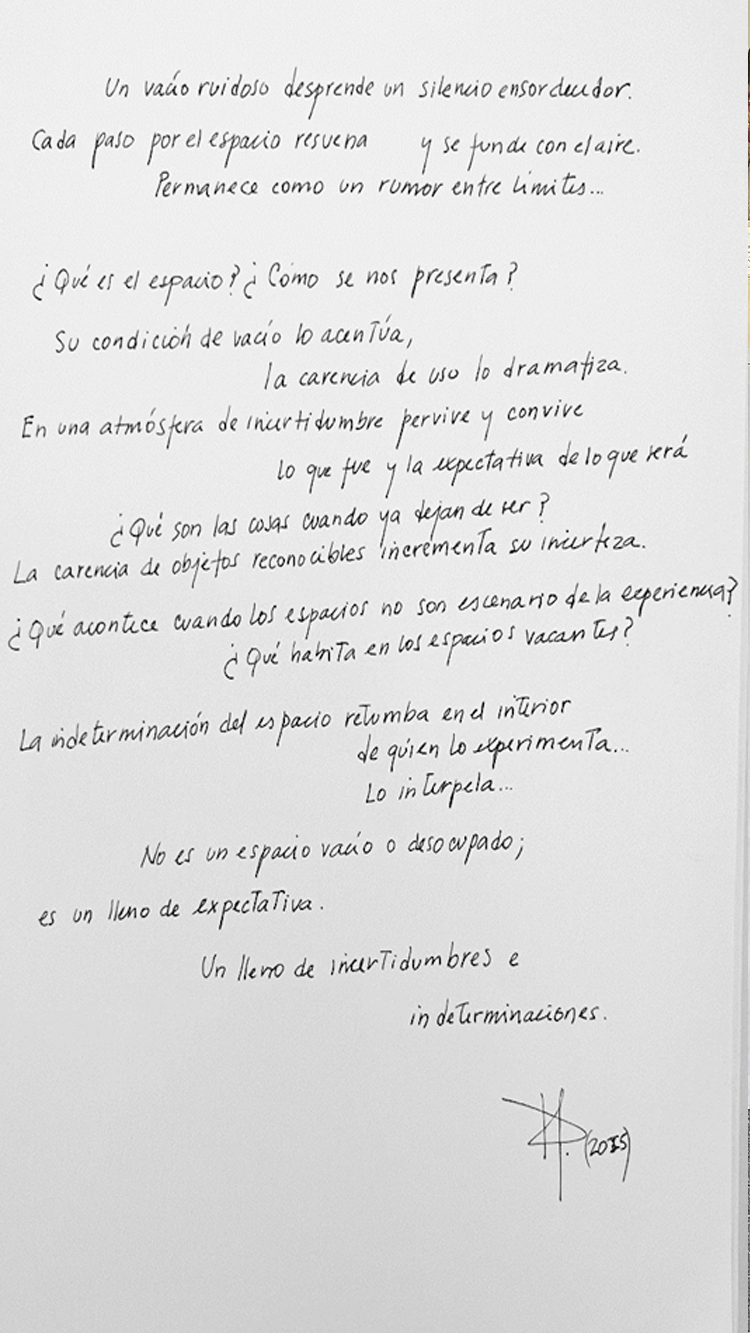 Un vacío ruidoso desprende un silencio ensordecedor.
Cada paso por el espacio resuena y se funde con el aire.
Permanece como un rumor entre límites...
¿Qué es el espacio? ¿Cómo se nos presenta?
Su condición de vacío lo acentúa,
la carencia de uso lo dramatiza.
En una atmósfera de incertidumbre pervive y convive
lo que fue y la expectativa de lo que será
¿Qué son las cosas cuando ya dejan de ser?
La carencia de objetos reconocibles incrementa su incerteza.
¿Qué acontece cuando los espacios no son escenario de la experiencia?
¿Qué habita en los espacios vacantes?
La indeterminación del espacio retumba en el interior
de quien lo experimenta...
Lo interpela...
No es un espacio vacío o desocupado;
es un lleno de expectativa.
Un lleno de incertidumbres e
indeterminaciones.
(2015)